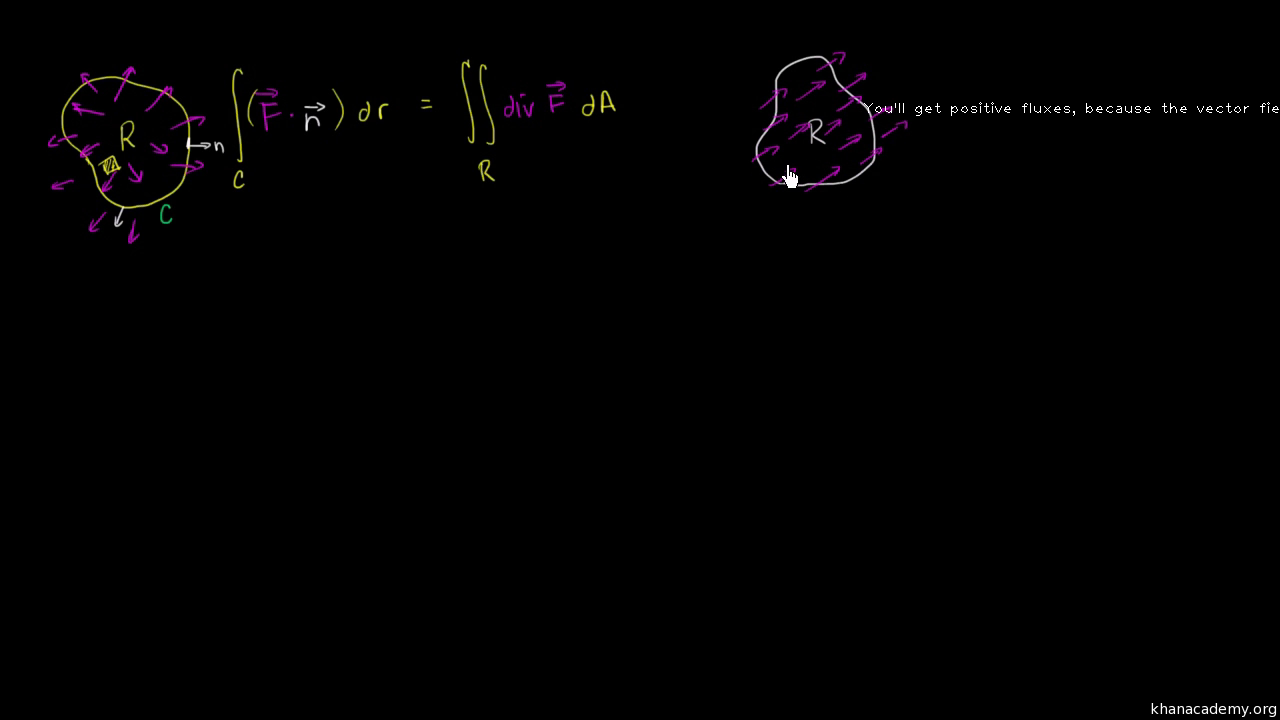 R
n
C
∫_C (F⃗ · n⃗) dr = ∬_R div F⃗ dA
R
You'll get positive fluxes, because the vector fie
khanacademy.org